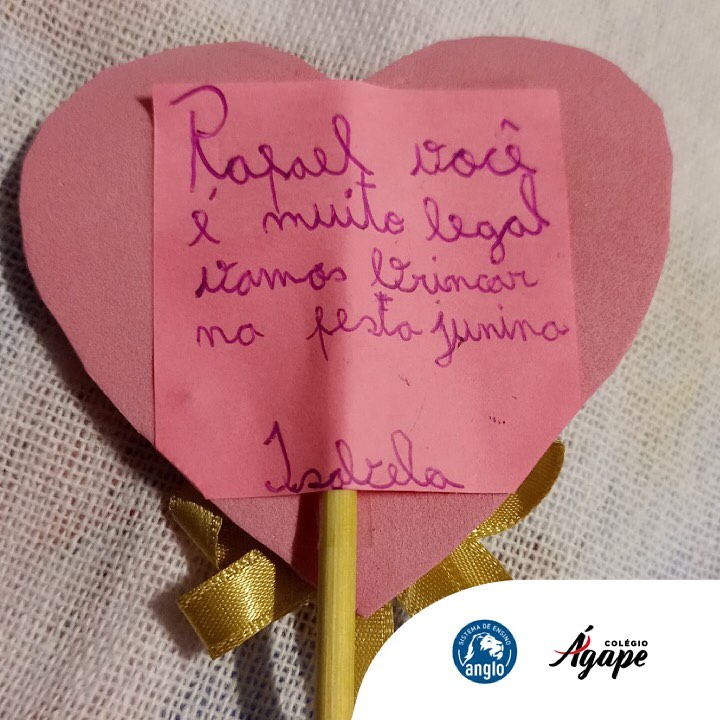 Rafael você
é muito legal
vamos brincar
na festa junina
Isabela
SISTEMA DE ENSINO
anglo
COLÉGIO
Ágape